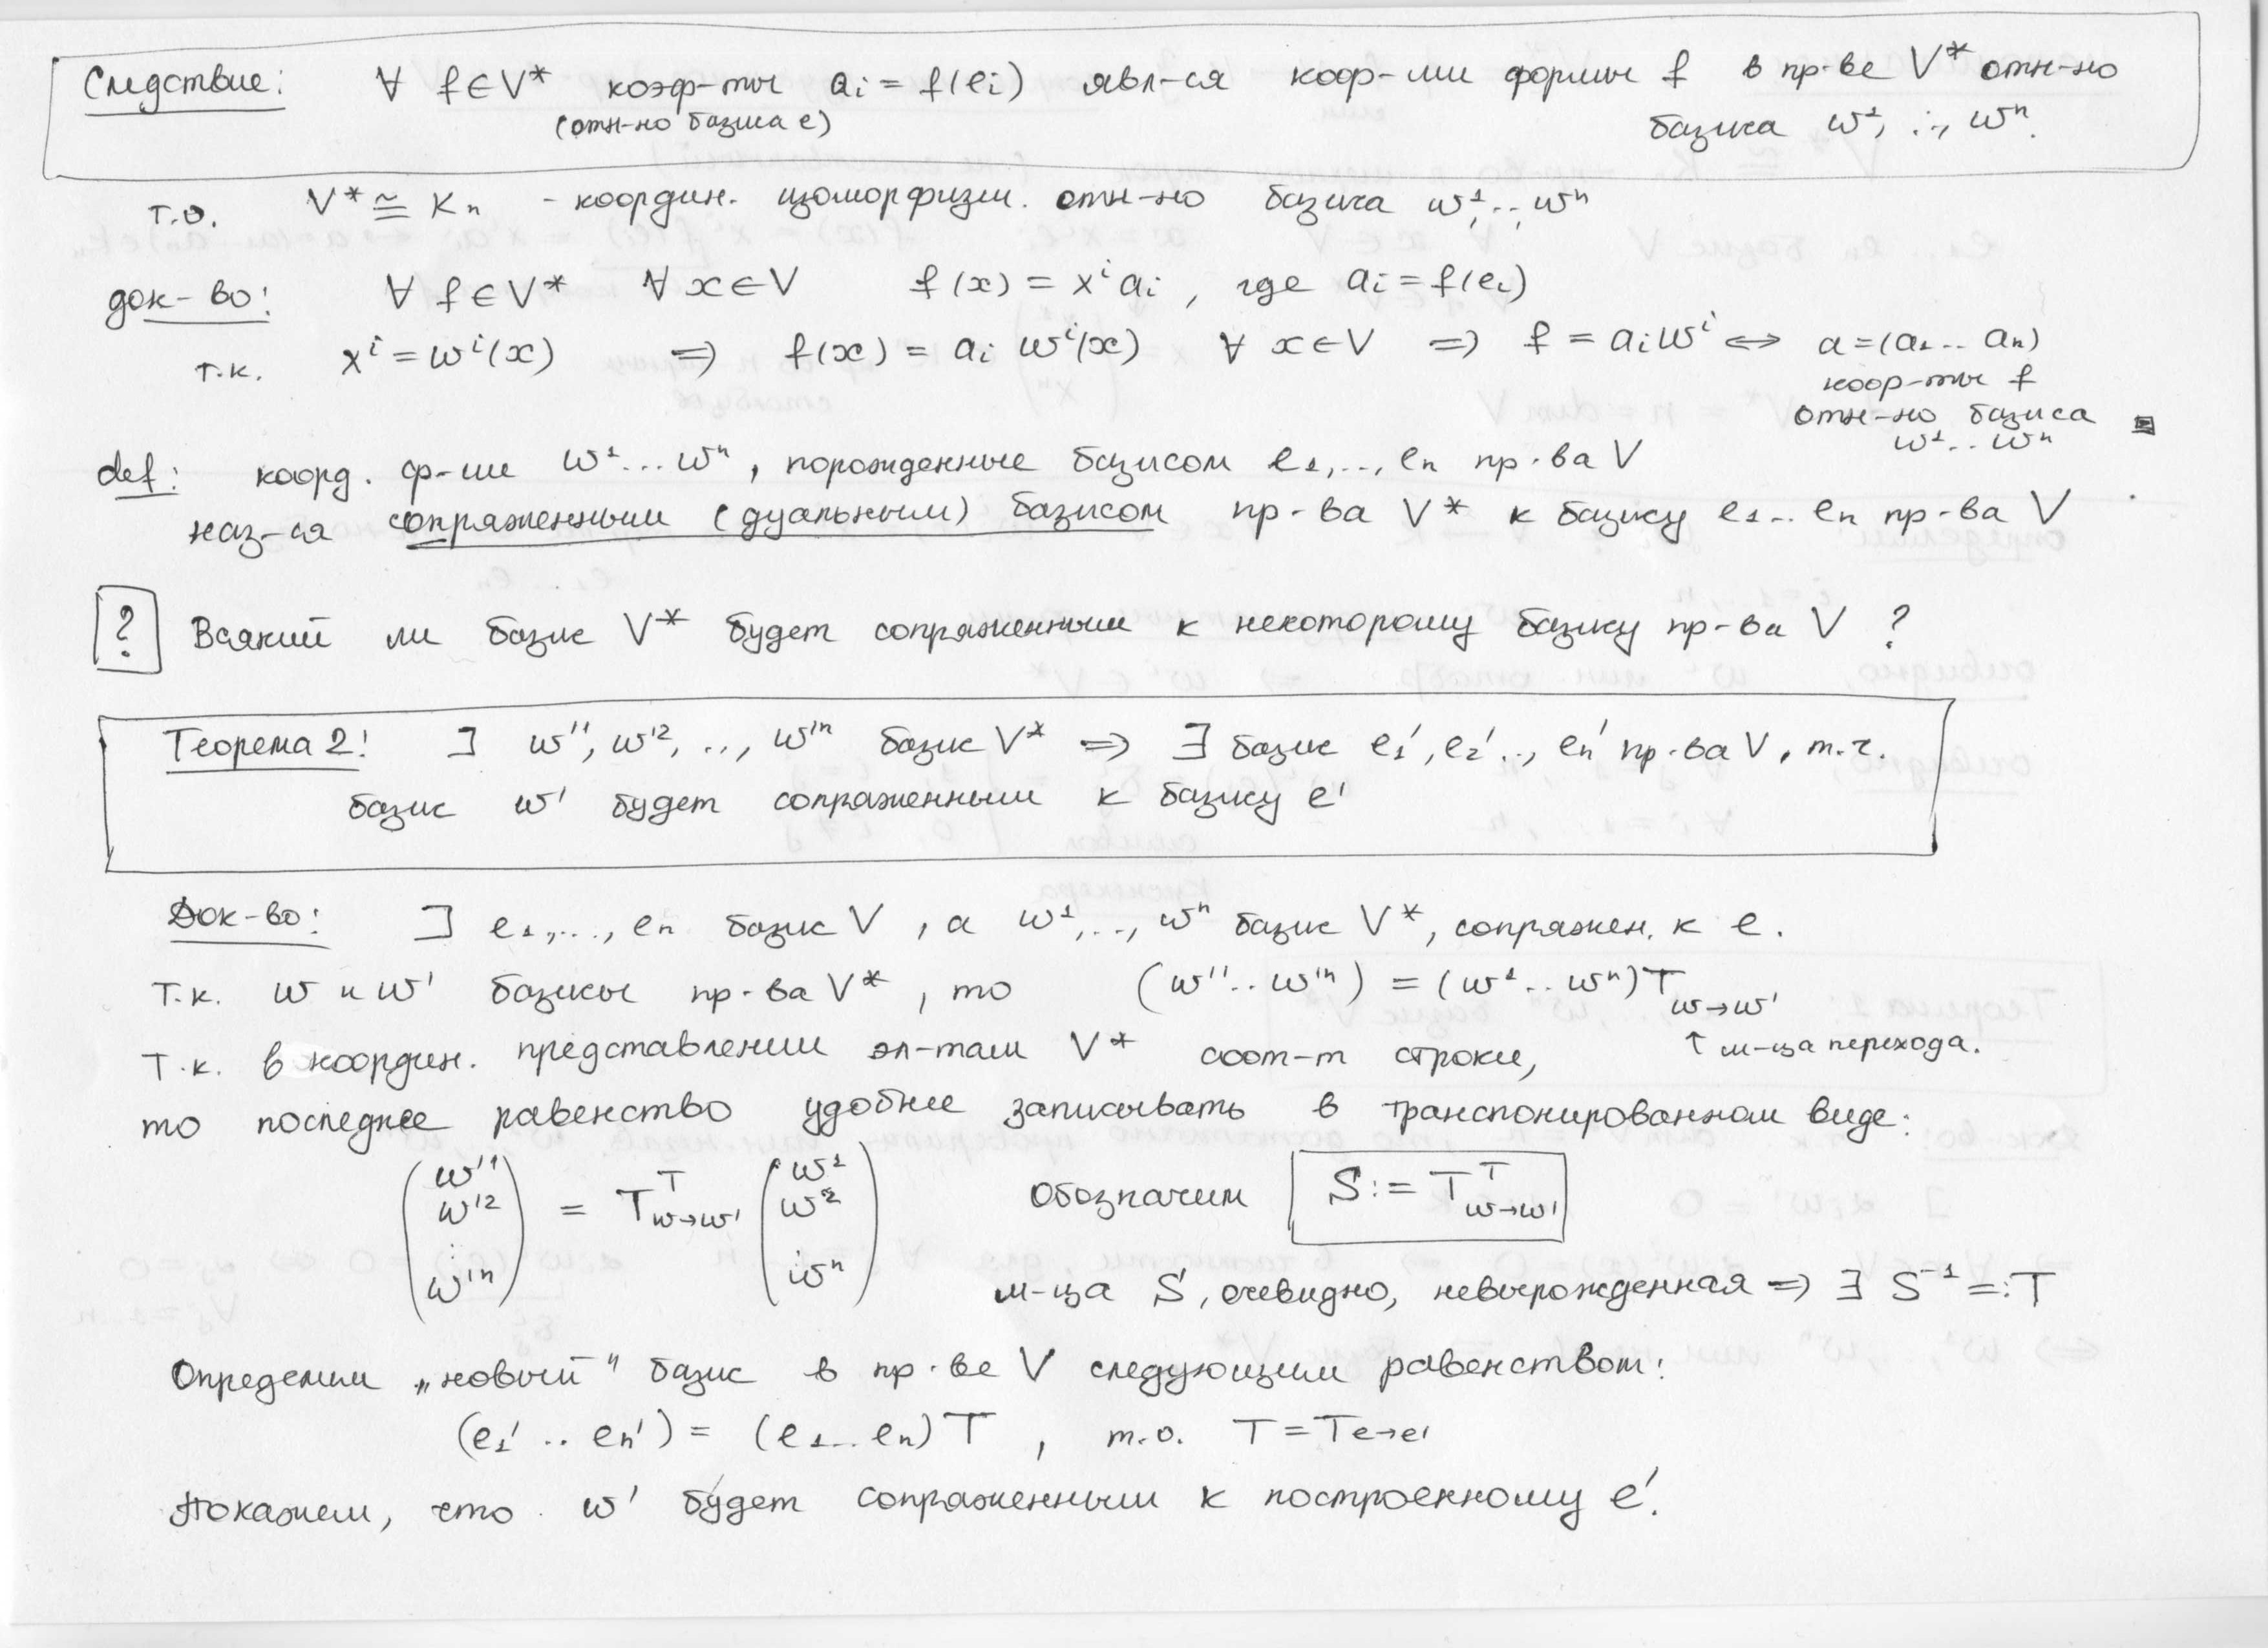 Следствие: ∀ f∈V* коэф-ты aᵢ = f(eᵢ) явл-ся коор-ми формы f в пр-ве V* отн-но
(отн-но базиса e) базиса ω¹, .., ωⁿ.
т.о. V* ≅ Kₙ - координ. изоморфизм. отн-но базиса ω¹, .., ωⁿ
док-во: ∀ f∈V* ∀ x∈V f(x) = xⁱaᵢ, где aᵢ = f(eᵢ)
т.к. xⁱ = ωⁱ(x) ⇒ f(x) = aᵢ ωⁱ(x) ∀ x∈V ⇒ f = aᵢωⁱ ⟺ a = (a₁.. aₙ)
коор-ты f
отн-но базиса
ω¹.. ωⁿ
def: коорд. ф-ии ω¹...ωⁿ, порожденные базисом e₁,.., eₙ пр-ва V
наз-ся сопряженным (дуальным) базисом пр-ва V* к базису e₁.. eₙ пр-ва V
? Всякий ли базис V* будет сопряженным к некоторому базису пр-ва V ?
Теорема 2: ∃ ω'¹, ω'², .., ω'ⁿ базис V* ⇒ ∃ базис e₁', e₂'.., eₙ' пр-ва V, т.ч.
базис ω' будет сопряженным к базису e'
Док-во: ∃ e₁,..., eₙ базис V, а ω¹,.., ωⁿ базис V*, сопряжен. к e.
Т.к. ω и ω' базисы пр-ва V*, то (ω'¹.. ω'ⁿ) = (ω¹.. ωⁿ)T_{ω→ω'}
↑ м-ца перехода.
Т.к. в координ. представлении эл-там V* соот-т строки,
то последнее равенство удобнее записывать в транспонированном виде:
(ω'¹ ω'² ⋮ ω'ⁿ) = Tᵀ_{ω→ω'} (ω¹ ω² ⋮ ωⁿ) Обозначим S := Tᵀ_{ω→ω'}
м-ца S, очевидно, невырожденная ⇒ ∃ S⁻¹ =: T
Определим „новый" базис в пр-ве V следующим равенством:
(e₁' .. eₙ') = (e₁... eₙ) T, т.о. T = T_{e→e'}
Покажем, что ω' будет сопряженным к построенному e'.